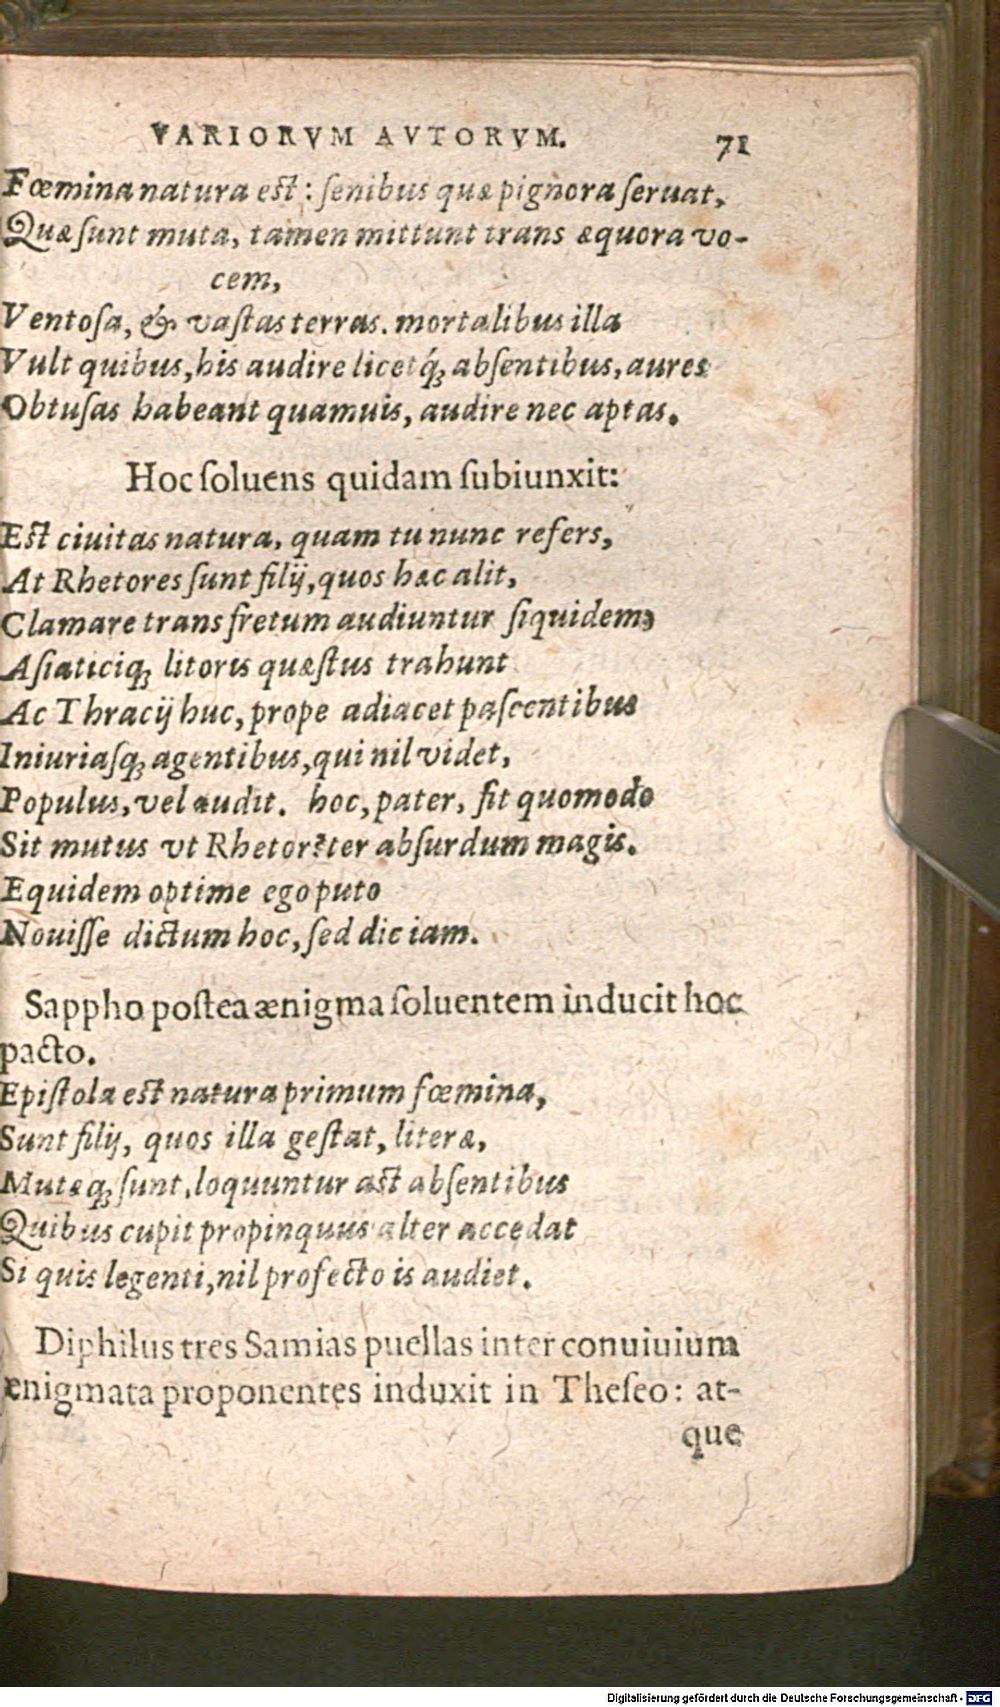 VARIORVM AVTORVM. 71
Fœmina natura est: ſenibus quæ pignora ſeruat,
Quæ ſunt muta, tamen mittunt trans æquora vo-
cem,
Ventoſa, & vaſtas terras. mortalibus illa
Vult quibus, his audire licetq́; abſentibus, aures
Obtuſas habeant quamuis, audire nec aptas.
Hoc ſoluens quidam ſubiunxit:
Est ciuitas natura, quam tu nunc refers,
At Rhetores ſunt filij, quos hæc alit,
Clamare trans fretum audiuntur ſiquidem,
Aſiaticiq; litoris quæſtus trahunt
Ac Thracij huc, prope adiacet paſcentibus
Iniuriaſq; agentibus, qui nil videt,
Populus, vel audit. hoc, pater, fit quomodo
Sit mutus vt Rhetor? ter abſurdum magis.
Equidem optime ego puto
Nouiſſe dictum hoc, ſed dic iam.
Sappho poſtea ænigma ſoluentem inducit hoc
pacto.
Epiſtola est natura primum fœmina,
Sunt filij, quos illa geſtat, literæ,
Mutæq; ſunt, loquuntur ast abſentibus
Quibus cupit propinquus alter accedat
Si quis legenti, nil profecto is audiet.
Diphilus tres Samias puellas inter conuiuium
ænigmata proponentes induxit in Theſeo: at-
que
Digitalisierung gefördert durch die Deutsche Forschungsgemeinschaft - DFG